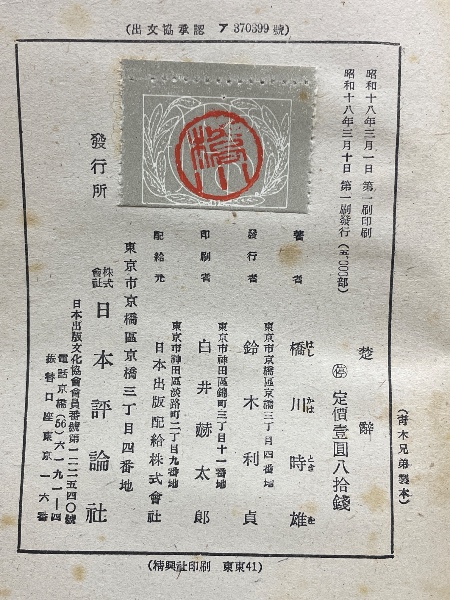 (出文協承認 ア 370399 號)
昭和十八年三月一日 第一刷印刷
昭和十八年三月十日 第一刷發行 (五、〇〇〇部)
楚辭
㊞ 定價壹圓八拾錢
著者 橋川時雄
はし かは とき を
東京市京橋區京橋三丁目四番地
發行者 鈴木利貞
東京市神田區錦町三丁目十一番地
印刷者 白井赫太郎
東京市神田區淡路町二丁目九番地
配給元 日本出版配給株式會社
東京市京橋區京橋三丁目四番地
發行所 株式會社 日本評論社
日本出版文化協會會員番號第一一二五四〇號
電話京橋(56)六一九一—四
振替口座東京一六番
(青木兄弟製本)
(精興社印刷 東東41)